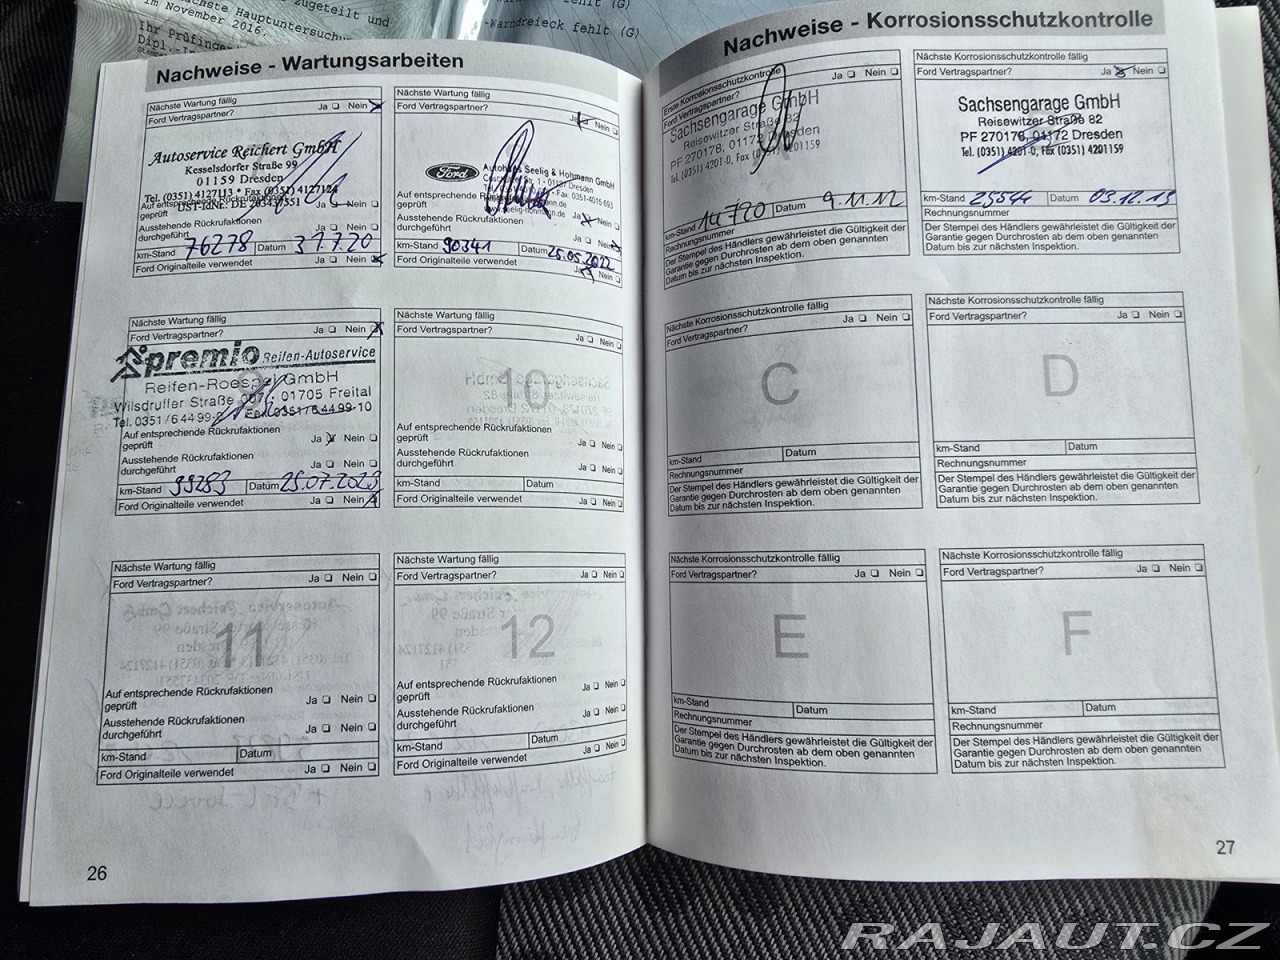 zugeteilt und
nächste Hauptuntersuchu
im November 2016.
Ihr Prüfinge
Dipl.-In
fehlt (G)
-Warndreieck fehlt (G)
Nachweise - Wartungsarbeiten
Nächste Wartung fällig
Ford Vertragspartner? Ja Nein
Autoservice Reichert GmbH
Kesselsdorfer Straße 99
01159 Dresden
Tel. (0351) 4127113 * Fax (0351) 4127124
UST-IdNr.: DE 203437551
Auf entsprechende Rückrufaktionen
geprüft Ja Nein
Ausstehende Rückrufaktionen
durchgeführt Ja Nein
km-Stand 76278 Datum 31.7.20
Ford Originalteile verwendet Ja Nein
Nächste Wartung fällig
Ford Vertragspartner?
Ja Nein
Ford
Autohaus Seelig & Hohmann GmbH
Auf entsprechende Rückrufaktionen
geprüft Ja Nein
Ausstehende Rückrufaktionen
durchgeführt Nein
km-Stand 90341 Datum 25.05.2022
Ford Originalteile verwendet Ja Nein
Nächste Wartung fällig
Ford Vertragspartner? Ja Nein
premio Reifen-Autoservice
Reifen-Roespel GmbH
Wilsdruffer Straße 01705 Freital
Tel. 0351/6 44 99- Fax 0351/6 44 99-10
Auf entsprechende Rückrufaktionen
geprüft Ja Nein
Ausstehende Rückrufaktionen
durchgeführt Ja Nein
km-Stand 99283 Datum 25.07.2023
Ford Originalteile verwendet Ja Nein
Nächste Wartung fällig
Ford Vertragspartner?
Ja Nein
10
Auf entsprechende Rückrufaktionen
geprüft Ja Nein
Ausstehende Rückrufaktionen
durchgeführt Ja Nein
km-Stand Datum
Ford Originalteile verwendet Ja Nein
Nächste Wartung fällig
Ford Vertragspartner? Ja Nein
11
Auf entsprechende Rückrufaktionen
geprüft Ja Nein
Ausstehende Rückrufaktionen
durchgeführt Ja Nein
km-Stand Datum
Ford Originalteile verwendet Ja Nein
Nächste Wartung fällig
Ford Vertragspartner? Ja Nein
12
Auf entsprechende Rückrufaktionen
geprüft Ja Nein
Ausstehende Rückrufaktionen
durchgeführt Ja Nein
km-Stand Datum
Ford Originalteile verwendet Ja Nein
26
Nachweise - Korrosionsschutzkontrolle
Erste Korrosionsschutzkontrolle
Ford Vertragspartner? Ja Nein
Sachsengarage GmbH
Reisewitzer Straße 82
PF 270178, 01172 Dresden
Tel. (0351) 4201-0, Fax (0351) 4201159
km-Stand 14720 Datum 9.11.12
Rechnungsnummer
Der Stempel des Händlers gewährleistet die Gültigkeit der
Garantie gegen Durchrosten ab dem oben genannten
Datum bis zur nächsten Inspektion.
Nächste Korrosionsschutzkontrolle fällig
Ford Vertragspartner? Ja Nein
Sachsengarage GmbH
Reisewitzer Straße 82
PF 270178, 01172 Dresden
Tel. (0351) 4201-0, Fax (0351) 4201159
km-Stand 25544 Datum 03.12.13
Rechnungsnummer
Der Stempel des Händlers gewährleistet die Gültigkeit der
Garantie gegen Durchrosten ab dem oben genannten
Datum bis zur nächsten Inspektion.
Nächste Korrosionsschutzkontrolle fällig
Ford Vertragspartner? Ja Nein
C
km-Stand Datum
Rechnungsnummer
Der Stempel des Händlers gewährleistet die Gültigkeit der
Garantie gegen Durchrosten ab dem oben genannten
Datum bis zur nächsten Inspektion.
Nächste Korrosionsschutzkontrolle fällig
Ford Vertragspartner? Ja Nein
D
km-Stand Datum
Rechnungsnummer
Der Stempel des Händlers gewährleistet die Gültigkeit der
Garantie gegen Durchrosten ab dem oben genannten
Datum bis zur nächsten Inspektion.
Nächste Korrosionsschutzkontrolle fällig
Ford Vertragspartner? Ja Nein
E
km-Stand Datum
Rechnungsnummer
Der Stempel des Händlers gewährleistet die Gültigkeit der
Garantie gegen Durchrosten ab dem oben genannten
Datum bis zur nächsten Inspektion.
Nächste Korrosionsschutzkontrolle fällig
Ford Vertragspartner? Ja Nein
F
km-Stand Datum
Rechnungsnummer
Der Stempel des Händlers gewährleistet die Gültigkeit der
Garantie gegen Durchrosten ab dem oben genannten
Datum bis zur nächsten Inspektion.
27
RAJAUT.CZ